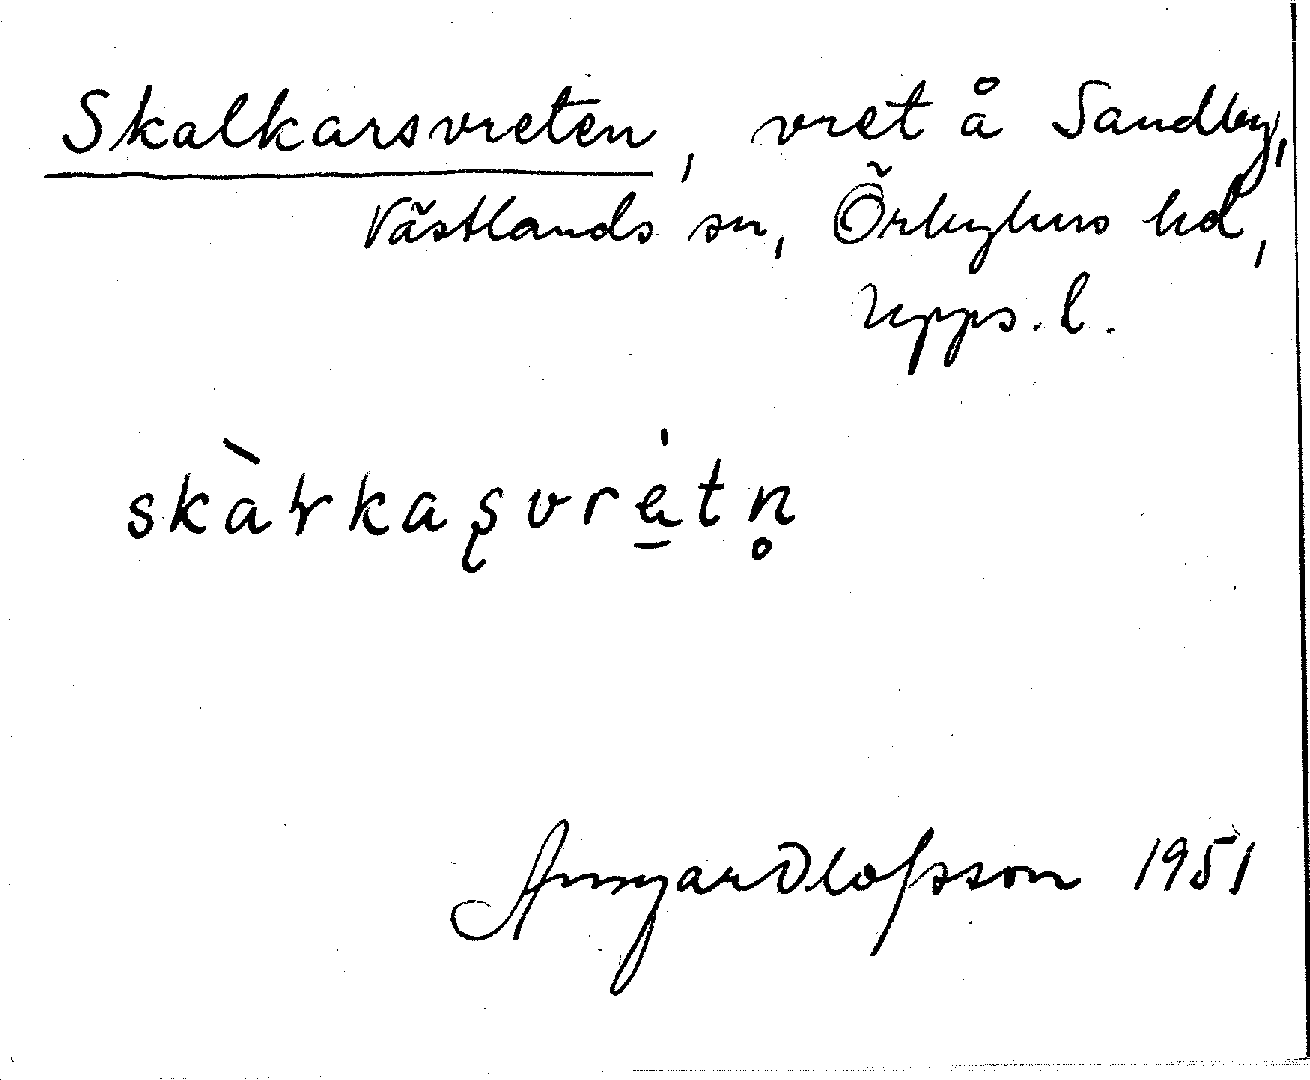 Skalkarsvreten, vret å Sandby,
Västlands sn, Örbyhus hd,
Upps. l.
skàɽkaʂvrè̱tn̥
Olofsson 1951